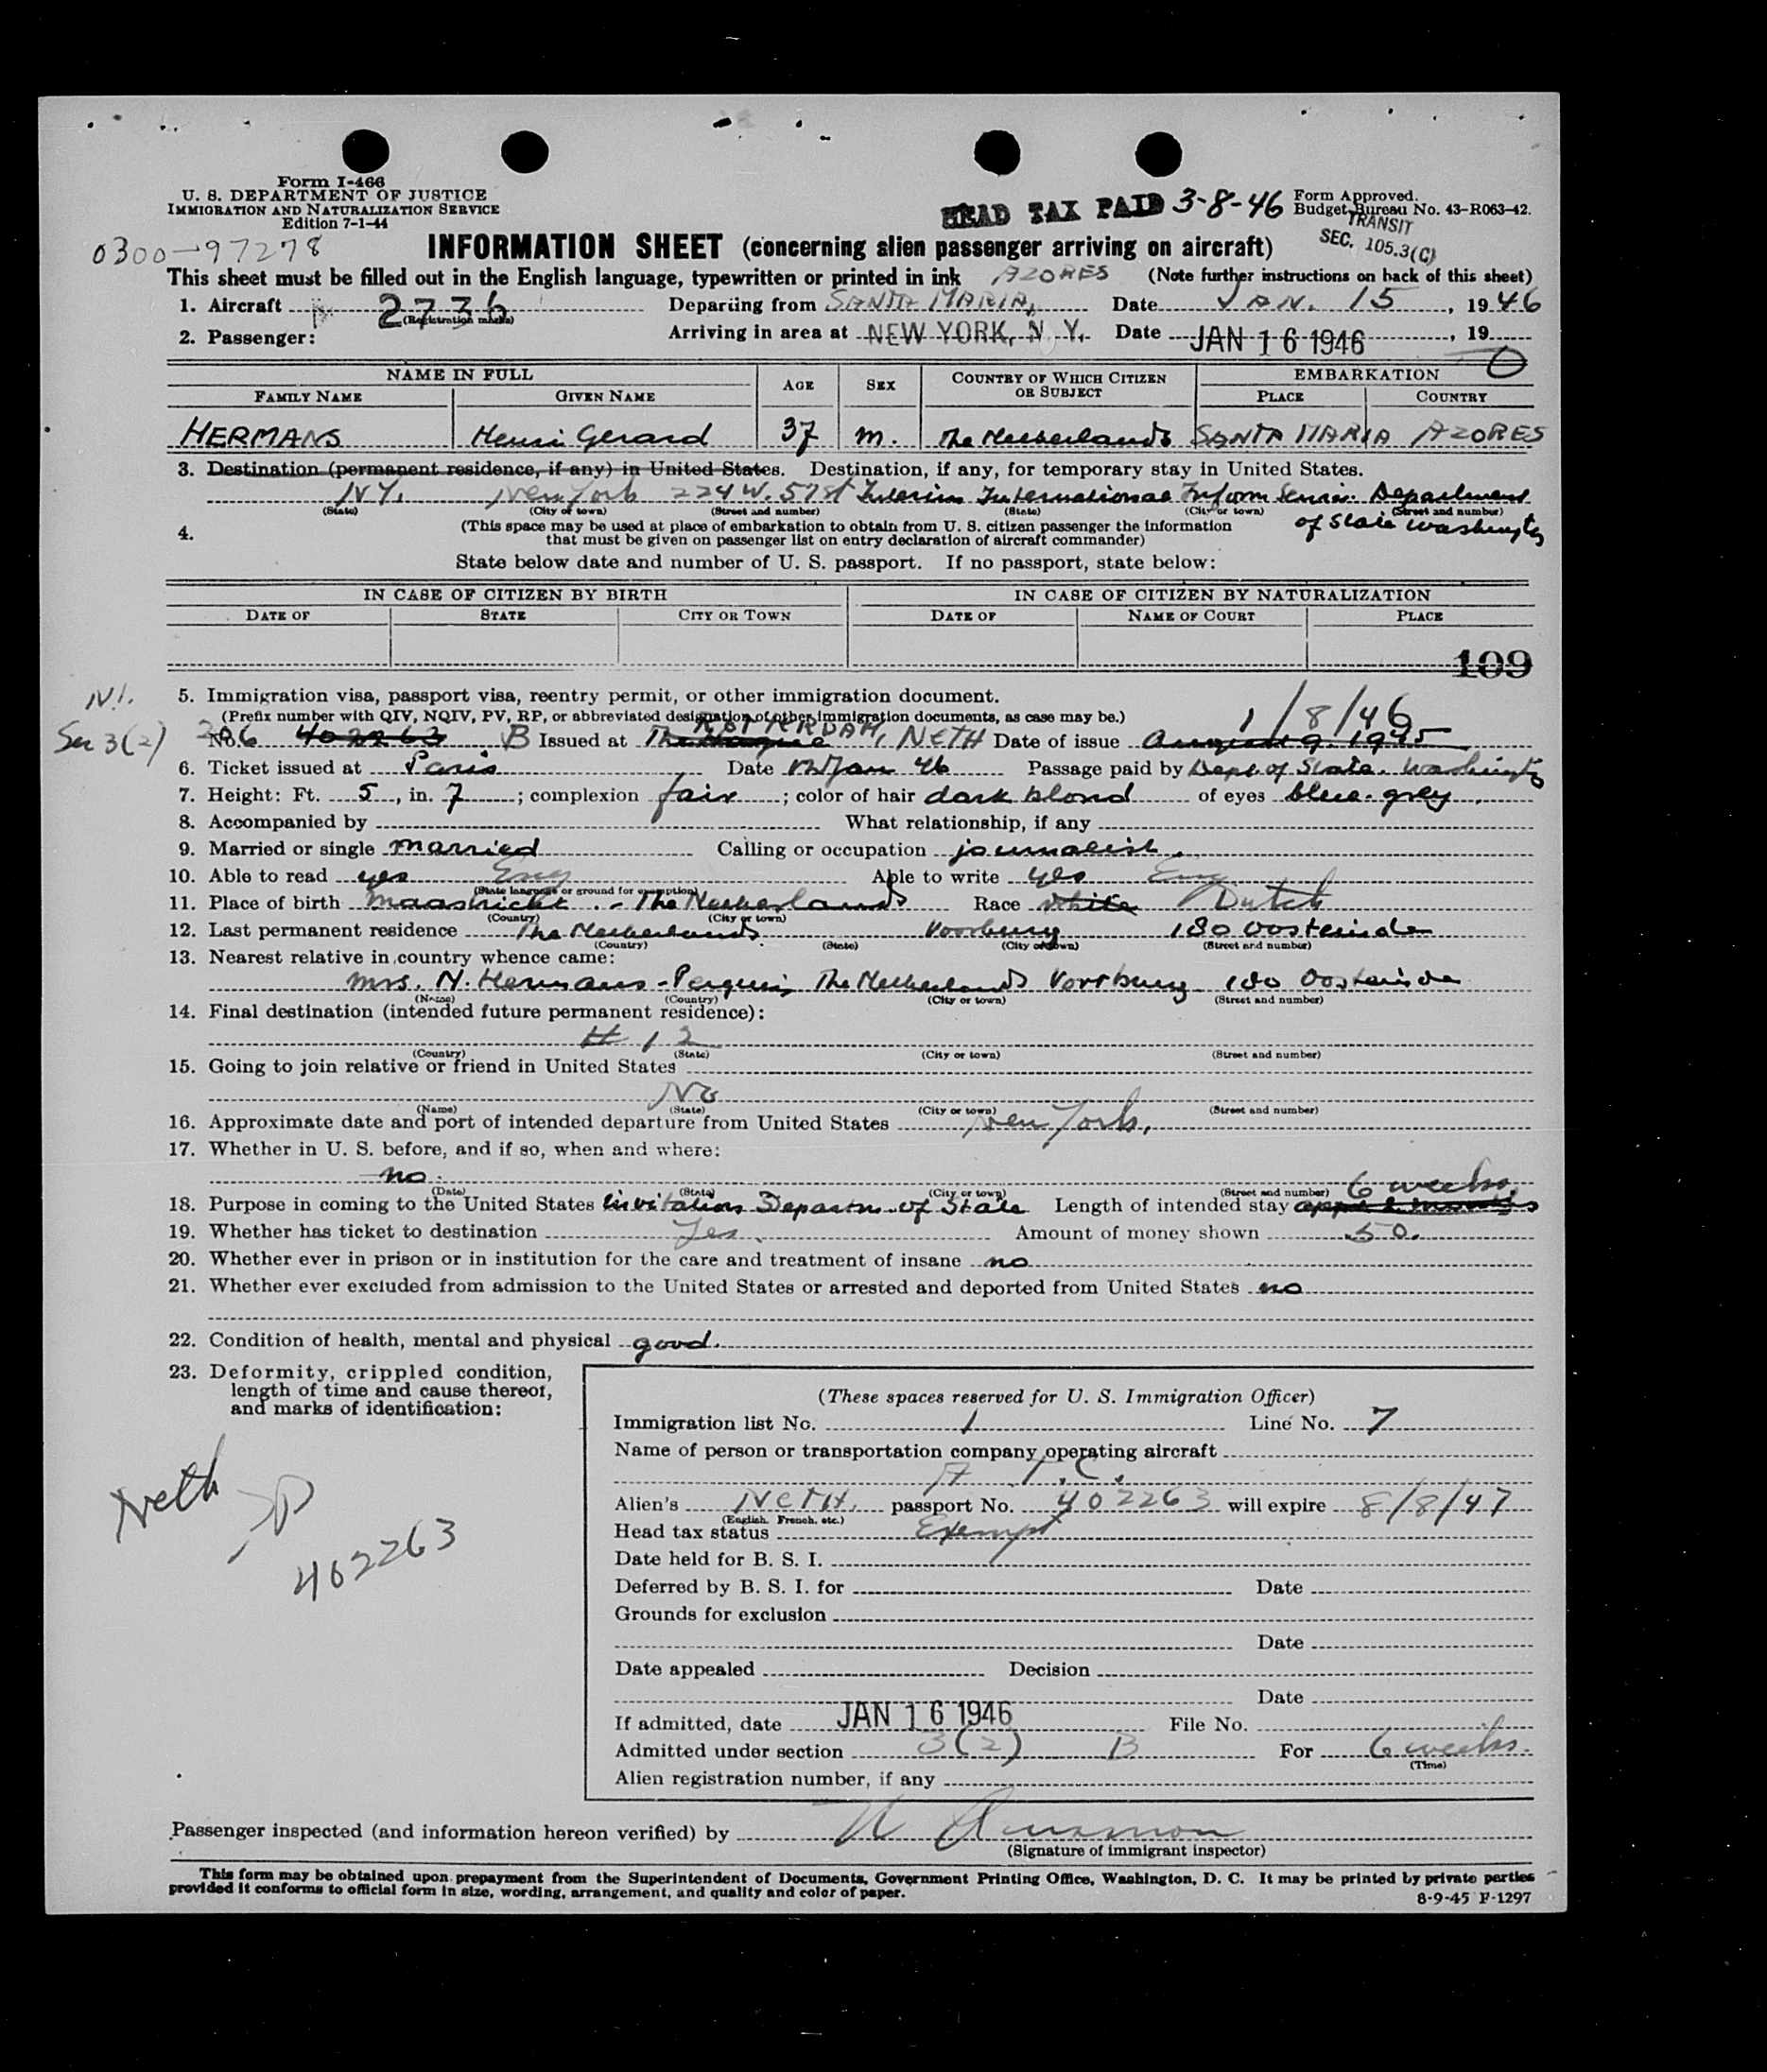 Form I-466
U. S. DEPARTMENT OF JUSTICE
IMMIGRATION AND NATURALIZATION SERVICE
Edition 7-1-44
HEAD TAX PAID 3-8-46
Form Approved.
Budget Bureau No. 43-R063-42.
TRANSIT
SEC. 105.3(C)
0300-97278
INFORMATION SHEET (concerning alien passenger arriving on aircraft)
This sheet must be filled out in the English language, typewritten or printed in ink AZORES (Note further instructions on back of this sheet)
1. Aircraft 2736 Departing from SANTA MARIA, Date JAN. 15, 1946
(Registration marks)
2. Passenger: Arriving in area at NEW YORK, N. Y. Date JAN 16 1946, 19
NAME IN FULL AGE SEX COUNTRY OF WHICH CITIZEN OR SUBJECT EMBARKATION
FAMILY NAME GIVEN NAME PLACE COUNTRY
HERMANS Henri Gerard 37 m. The Netherlands SANTA MARIA AZORES
3. Destination (permanent residence, if any) in United States. Destination, if any, for temporary stay in United States.
N.Y. New York 224 W. 57 St Interim International Inform Servic. Department
(State) (City or town) (Street and number) (State) (City or town) (Street and number)
of State Washington
4. (This space may be used at place of embarkation to obtain from U. S. citizen passenger the information
that must be given on passenger list on entry declaration of aircraft commander)
State below date and number of U. S. passport. If no passport, state below:
IN CASE OF CITIZEN BY BIRTH IN CASE OF CITIZEN BY NATURALIZATION
DATE OF STATE CITY OR TOWN DATE OF NAME OF COURT PLACE
109
N.I.
Sec 3(2)
5. Immigration visa, passport visa, reentry permit, or other immigration document.
(Prefix number with QIV, NQIV, PV, RP, or abbreviated designation of other immigration documents, as case may be.)
ROTTERDAM, NETH 1/8/46
No. 402263 B Issued at The Hague Date of issue August 9. 1945
6. Ticket issued at Paris Date Jan 46 Passage paid by Dept. of State. Washington
7. Height: Ft. 5, in. 7; complexion fair; color of hair dark blond of eyes blue-grey
8. Accompanied by What relationship, if any
9. Married or single married Calling or occupation journalist.
10. Able to read yes Eng Able to write yes Eng
(State language or ground for exemption)
11. Place of birth Maastricht - The Netherlands Race white Dutch
(Country) (City or town)
12. Last permanent residence The Netherlands Voorburg 180 Oosteinde
(Country) (State) (City or town) (Street and number)
13. Nearest relative in country whence came:
mrs. N. Hermans- The Netherlands Voorburg 180 Oosteinde
(Name) (Country) (City or town) (Street and number)
14. Final destination (intended future permanent residence):
# 12
(Country) (State) (City or town) (Street and number)
15. Going to join relative or friend in United States
No
(Name) (State) (City or town) (Street and number)
16. Approximate date and port of intended departure from United States New York,
17. Whether in U. S. before, and if so, when and where:
no.
(Date) (State) (City or town) (Street and number)
6 weeks
18. Purpose in coming to the United States invitation Departm. of State Length of intended stay
19. Whether has ticket to destination Yes. Amount of money shown 50.
20. Whether ever in prison or in institution for the care and treatment of insane no
21. Whether ever excluded from admission to the United States or arrested and deported from United States no
22. Condition of health, mental and physical good.
23. Deformity, crippled condition,
length of time and cause thereof,
and marks of identification:
Neth
PP
402263
(These spaces reserved for U. S. Immigration Officer)
Immigration list No. 1 Line No. 7
Name of person or transportation company operating aircraft
A. T. C.
Alien's NETH. passport No. 402263 will expire 8/8/47
(English, French, etc.)
Head tax status Exempt
Date held for B. S. I.
Deferred by B. S. I. for Date
Grounds for exclusion
Date
Date appealed Decision
Date
If admitted, date JAN 16 1946 File No.
Admitted under section 3(2) B For 6 weeks.
(Time)
Alien registration number, if any
Passenger inspected (and information hereon verified) by
(Signature of immigrant inspector)
This form may be obtained upon prepayment from the Superintendent of Documents, Government Printing Office, Washington, D. C. It may be printed by private parties
provided it conforms to official form in size, wording, arrangement, and quality and color of paper.
8-9-45 F-1297